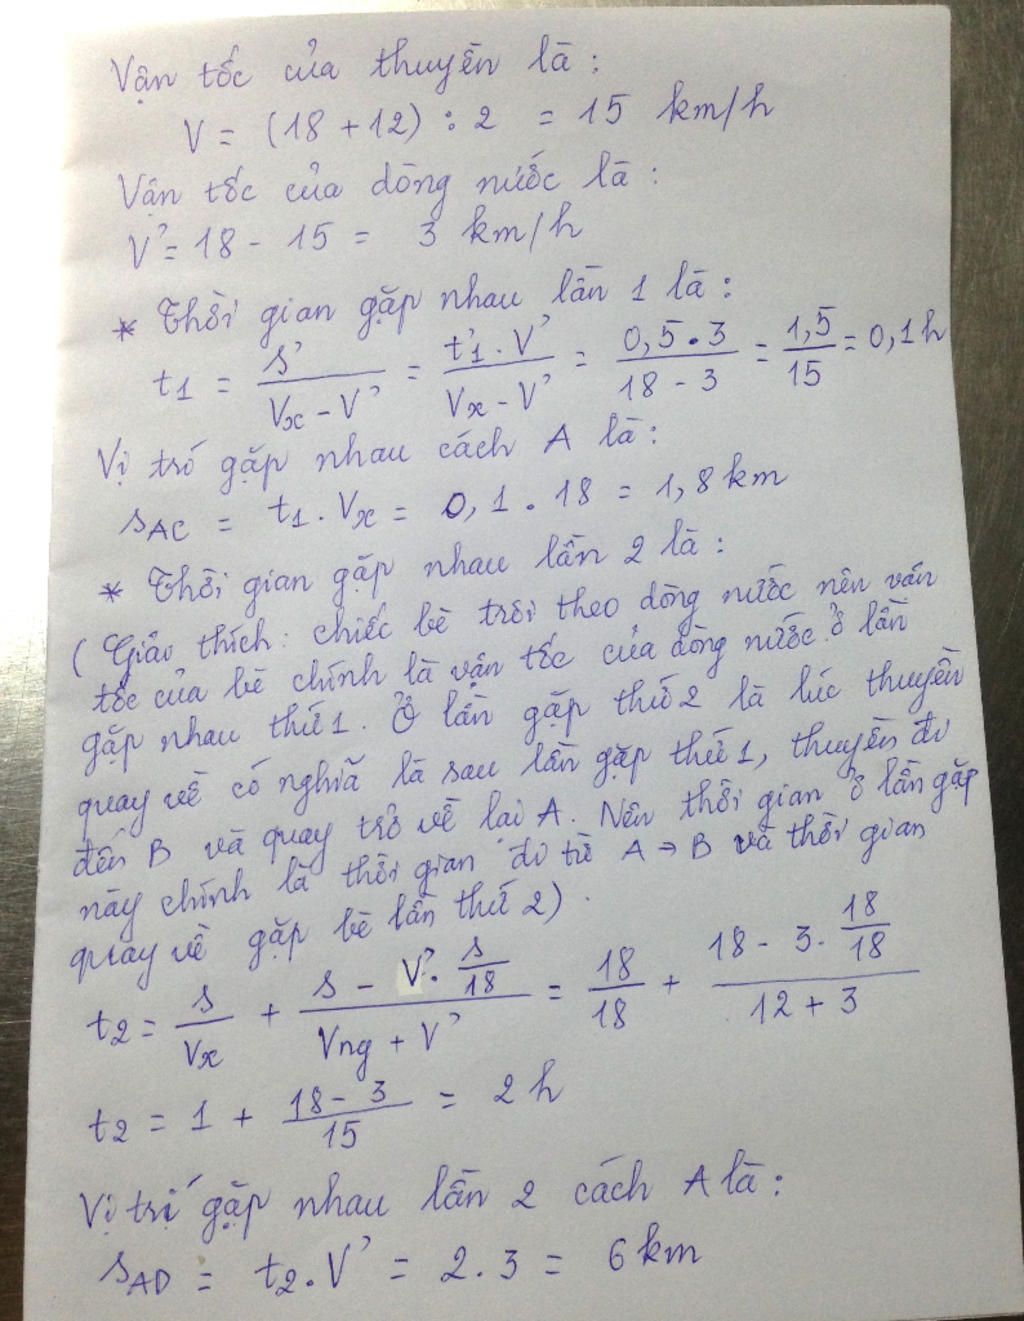 Vận tốc của thuyền là :
V = (18 + 12) : 2 = 15 km/h
Vận tốc của dòng nước là :
V' = 18 - 15 = 3 km/h
* Thời gian gặp nhau lần 1 là :
t1 = s' / (Vx - V') = t'1 . V' / (Vx - V') = 0,5 . 3 / (18 - 3) = 1,5 / 15 = 0,1 h
Vị trí gặp nhau cách A là :
sAC = t1 . Vx = 0,1 . 18 = 1,8 km
* Thời gian gặp nhau lần 2 là :
( Giải thích : chiếc bè trôi theo dòng nước nên vận
tốc của bè chính là vận tốc của dòng nước ở lần
gặp nhau thứ 1. Ở lần gặp thứ 2 là lúc thuyền
quay về có nghĩa là sau lần gặp thứ 1, thuyền đi
đến B và quay trở về lại A. Nên thời gian ở lần gặp
này chính là thời gian đi từ A → B và thời gian
quay về gặp bè lần thứ 2) .
t2 = s / Vx + (s - V' . s/18) / (Vng + V') = 18/18 + (18 - 3 . 18/18) / (12 + 3)
t2 = 1 + (18 - 3) / 15 = 2 h
Vị trí gặp nhau lần 2 cách A là :
sAD = t2 . V' = 2 . 3 = 6 km